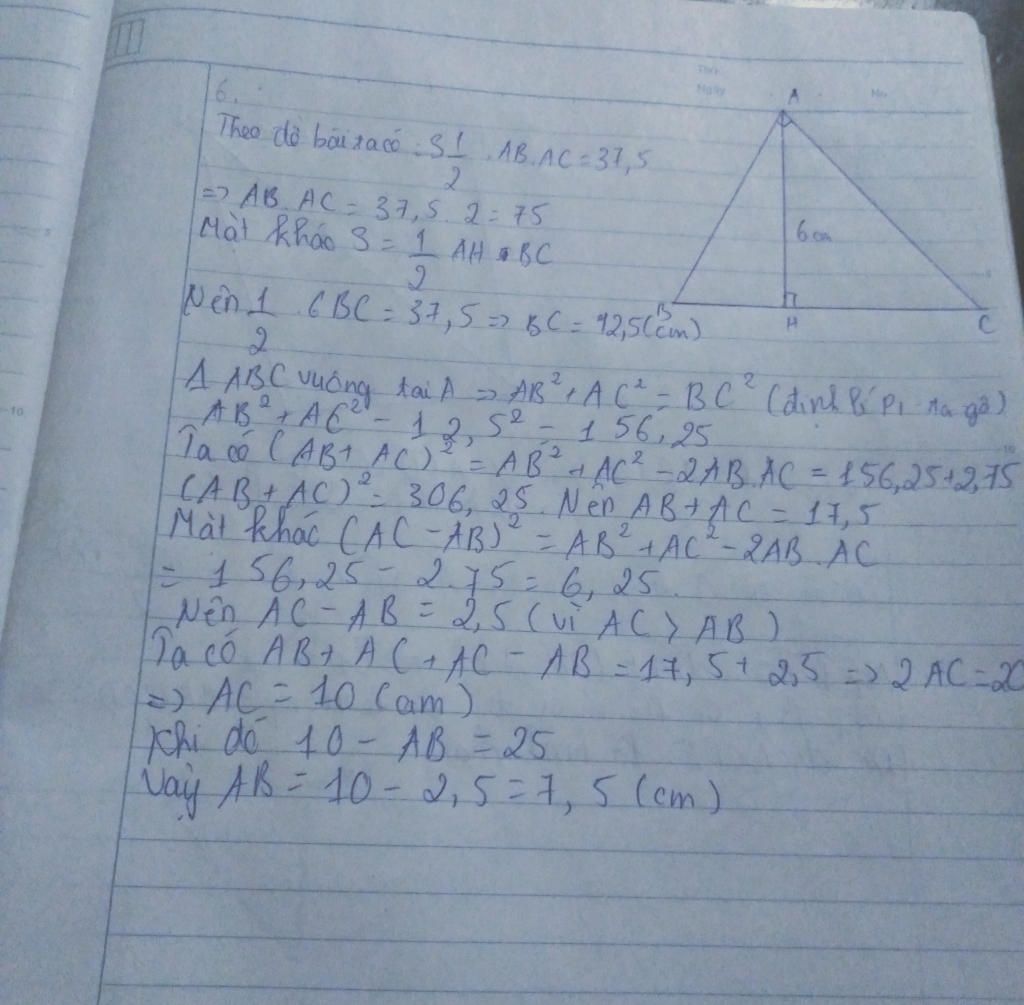 Thứ
Ngày
No
6.
Theo đề bài ta có: S 1/2 . AB.AC = 37,5
=> AB.AC = 37,5.2 = 75
Mặt khác S = 1/2 AH.BC
Nên 1/2 . 6BC = 37,5 => BC = 12,5(cm)
Δ ABC vuông tại A => AB² + AC² = BC² (định lí Pi-ta-go)
AB² + AC² = 12,5² = 156,25
Ta có (AB + AC)² = AB² + AC² - 2AB.AC = 156,25+2,75
(AB + AC)² = 306,25. Nên AB + AC = 17,5
Mặt khác (AC - AB)² = AB² + AC² - 2AB.AC
= 156,25 - 2.75 = 6,25
Nên AC - AB = 2,5 (vì AC > AB)
Ta có AB + AC + AC - AB = 17,5 + 2,5 => 2AC = 20
=> AC = 10 (cm)
Khi đó 10 - AB = 25
Vậy AB = 10 - 2,5 = 7,5 (cm)
A
6cm
B
H
C